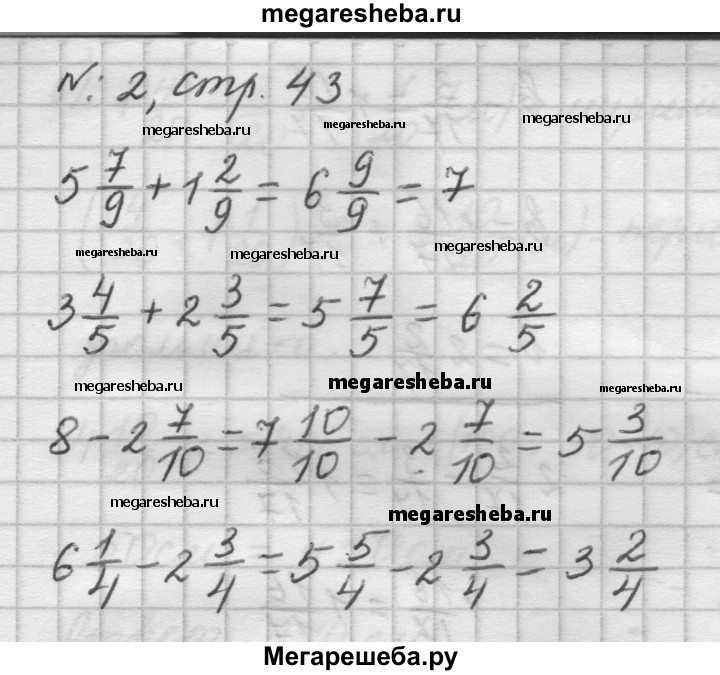 megaresheba.ru
№: 2, стр. 43
megaresheba.ru megaresheba.ru
5 7/9 + 1 2/9 = 6 9/9 = 7
megaresheba.ru megaresheba.ru megaresheba.ru
3 4/5 + 2 3/5 = 5 7/5 = 6 2/5
megaresheba.ru megaresheba.ru megaresheba.ru
8 - 2 7/10 = 7 10/10 - 2 7/10 = 5 3/10
megaresheba.ru megaresheba.ru
6 1/4 - 2 3/4 = 5 5/4 - 2 3/4 = 3 2/4
Мегарешеба.ру